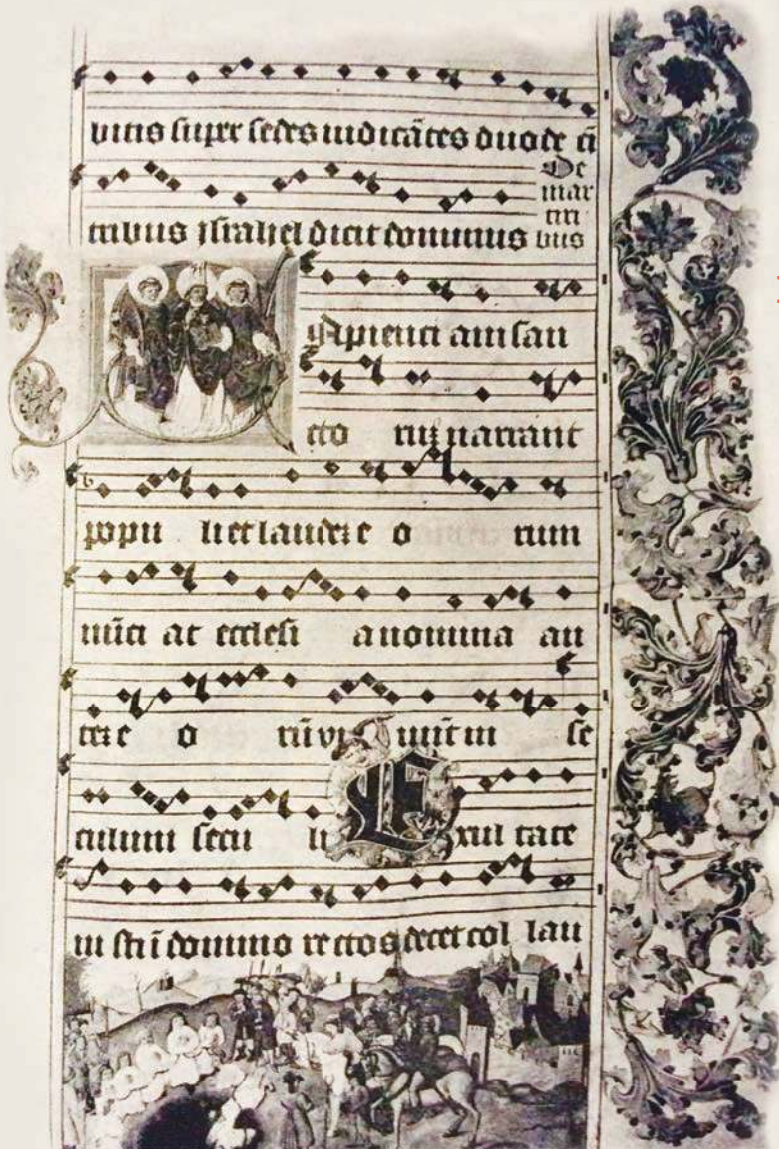 vitis super sedes iudicãtes duode cĩ
De
mar
tiri
tribus israhel dicit dominus bus
Sapienci am san
cto rũ narrant
popu li et laudeȝ e o rum
nũci at ecclesi a nomina au
teȝ e o rũ vi uũt in se
culum secu li Exul tate
iu sti ĩ domino rectos decet col lau